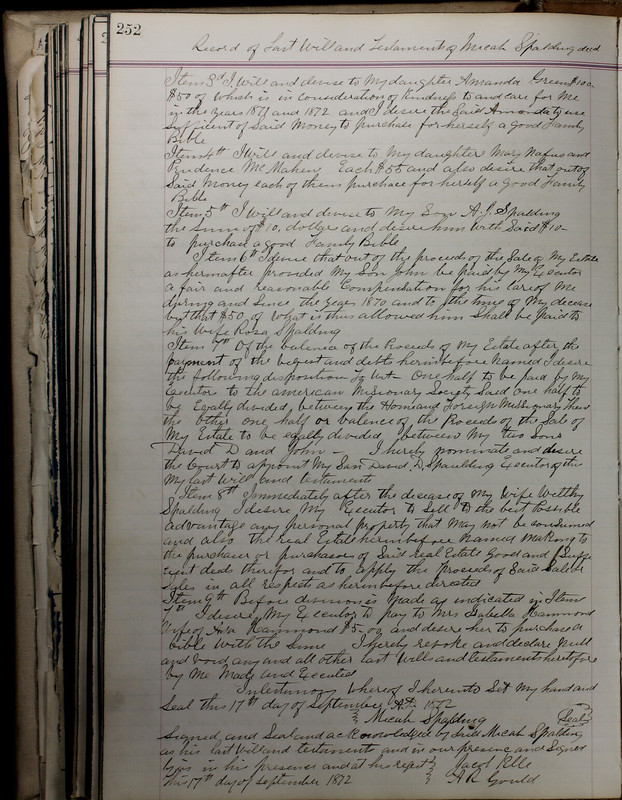 252
Record of Last Will and Testament of Micah Spalding decd
Item 3d I Will and devise to My daughter Amanda Green $100-
$50 of which is in consideration of kindness to and care for Me
in the years 1871 and 1872 and I desire the said Amanda to use
sufficient of said Money to purchase for herself a good Family
Bible
Item 4th I Will and devise to My daughter Mary Nafus and
Prudence McMaken Each $55 and also desire that out of
Said Money each of them purchase for herself a Good Family
Bible
Item 5th I Will and devise to My Son A.J. Spalding
the Sum of $10, dollars and desire him with Said $10-
to purchase a good Family Bible
Item 6th I desire that out of the proceeds of the Sale of My Estate
as hereinafter provided My Son John be paid by My Executor
a fair and reasonable Compensation for his Care of Me
during and Since the Year 1870 and to the time of My decease
but that $50, of what is thus allowed him Shall be paid to
his Wife Rosa Spalding
Item 7th Of the balance of the Proceeds of My Estate after the
payment of the bequest and debts herinbefore Named I desire
the following disposition To Wit - One half to be paid by My
Executor to the american Missionary Society Said One half to
be Eqally divided between the Home and Foreign Missionary
the other one half or balance of the Proceeds of the Sale of
My Estate to be eqally divided between My two Sons
David D and John - I hereby nominate and desire
the Court to appoint My Son David D. Spaulding Executor of this
My last Will and testament
Item 8th Immediately after the decease of My Wife Welthy
Spalding I desire My Executor to Sell to the best Possible
advantage any personal property that May not be consumed
and also the real Estate herinbefore Named Making to
the purchaser or purchasers of Said real Estate Good and Suffi
cient deeds therefor and to apply the proceeds of Said Sale or
Sales in all respect as herinbefore directed
Item 9th Before division is Made as indicated in Item
7th I desire My Executor to pay to Mrs Isabella Hammond
Wife of Hammond $5-00 and desire her to purchase a
bible With the Same I hereby revoke and declare Null
and Void any and all other last Will and testaments heretofore
by Me Made and Executed
In testimony Whereof I hereunto Set My hand and
Seal this 17th day of September A.D. 1872
Micah Spalding Seal
Signed and Seal and acknowledged by Said Micah Spalding
as his last Will and testament and in our presence and Signed
by us in his presence and at his reqest Jacob
This 17th day of September 1872 A R Gould